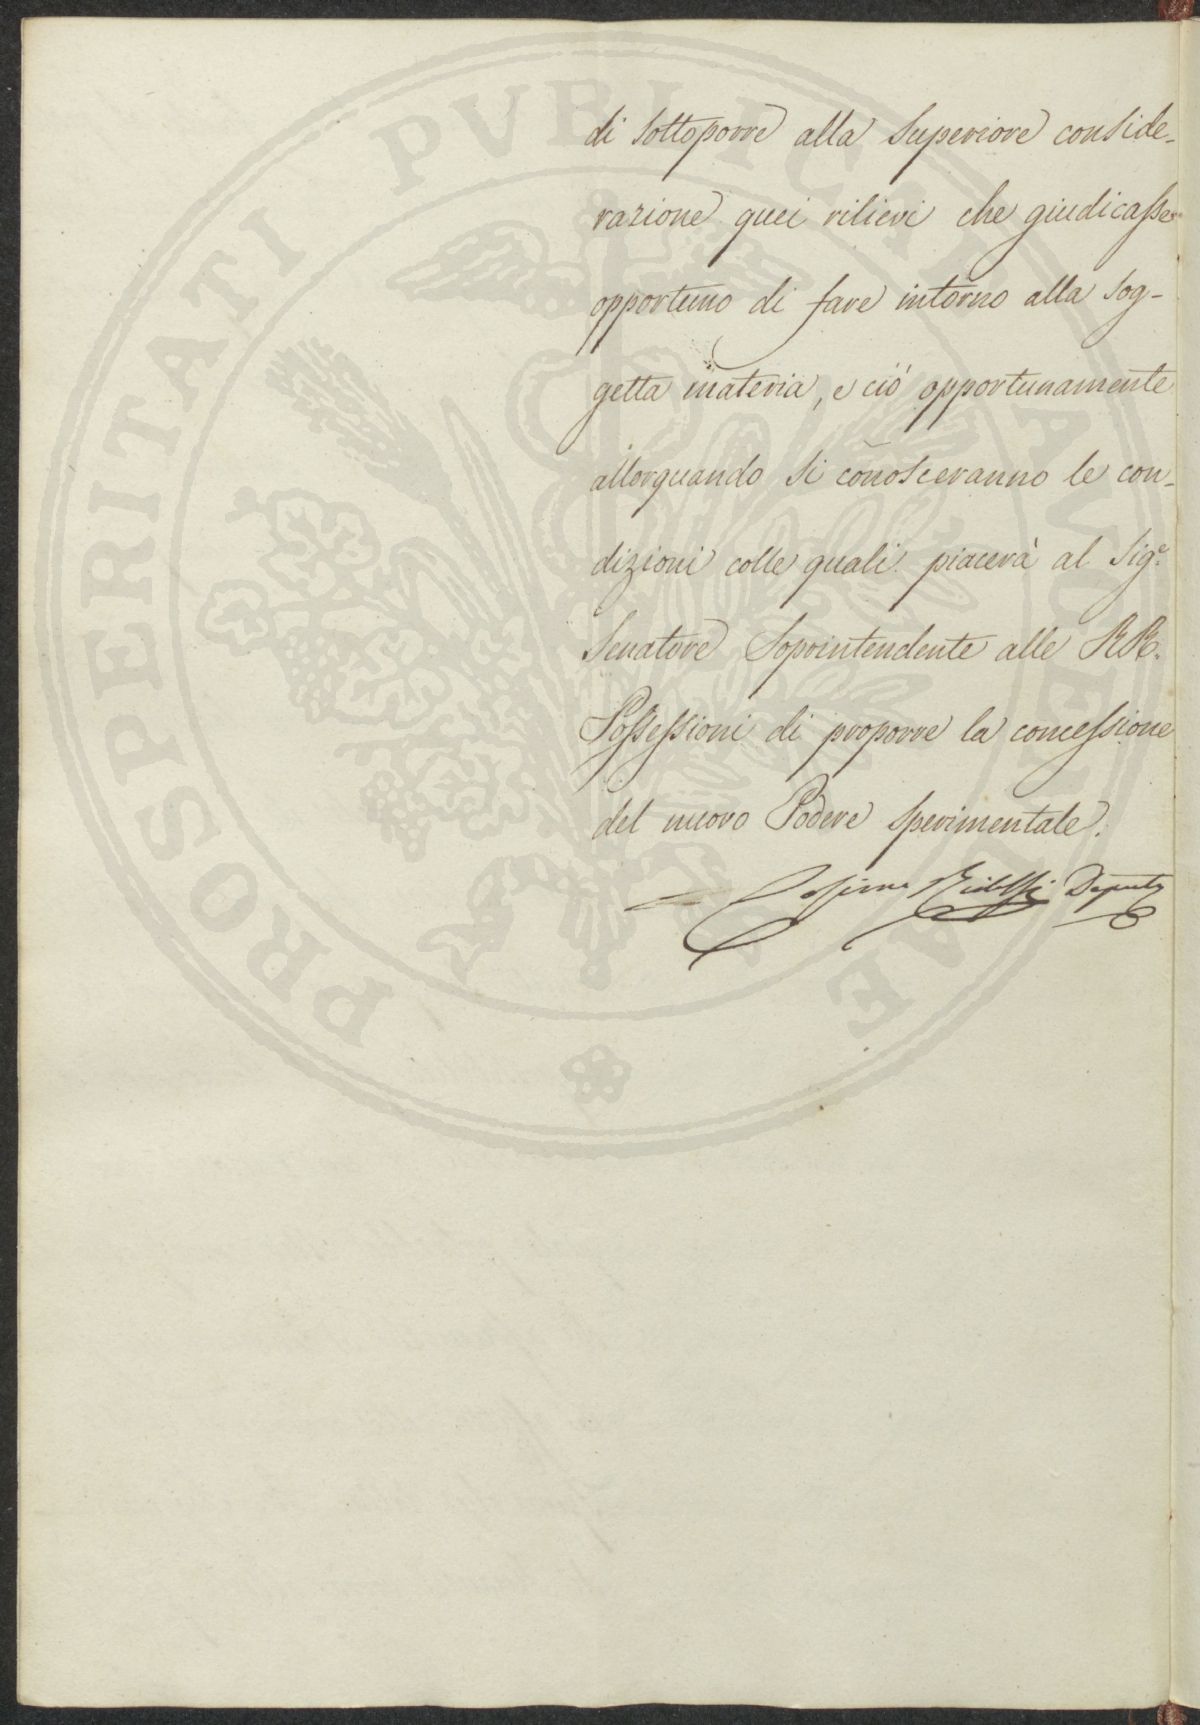 di sottoporre alla Superiore conside-
razione quei rilievi che giudicasse
opportuno di fare intorno alla sog-
getta materia, e ciò opportunamente
allorquando si coñosceranno le con-
dizioni colle quali piacerà al Sig.e
Senatore Soprintendente alle RR.
Possessioni di proporre la concessione
del nuovo Podere sperimentale.
Cosimo Ridolfi Deputo
PROSPERITATI PVBLICAE AVGENDAE